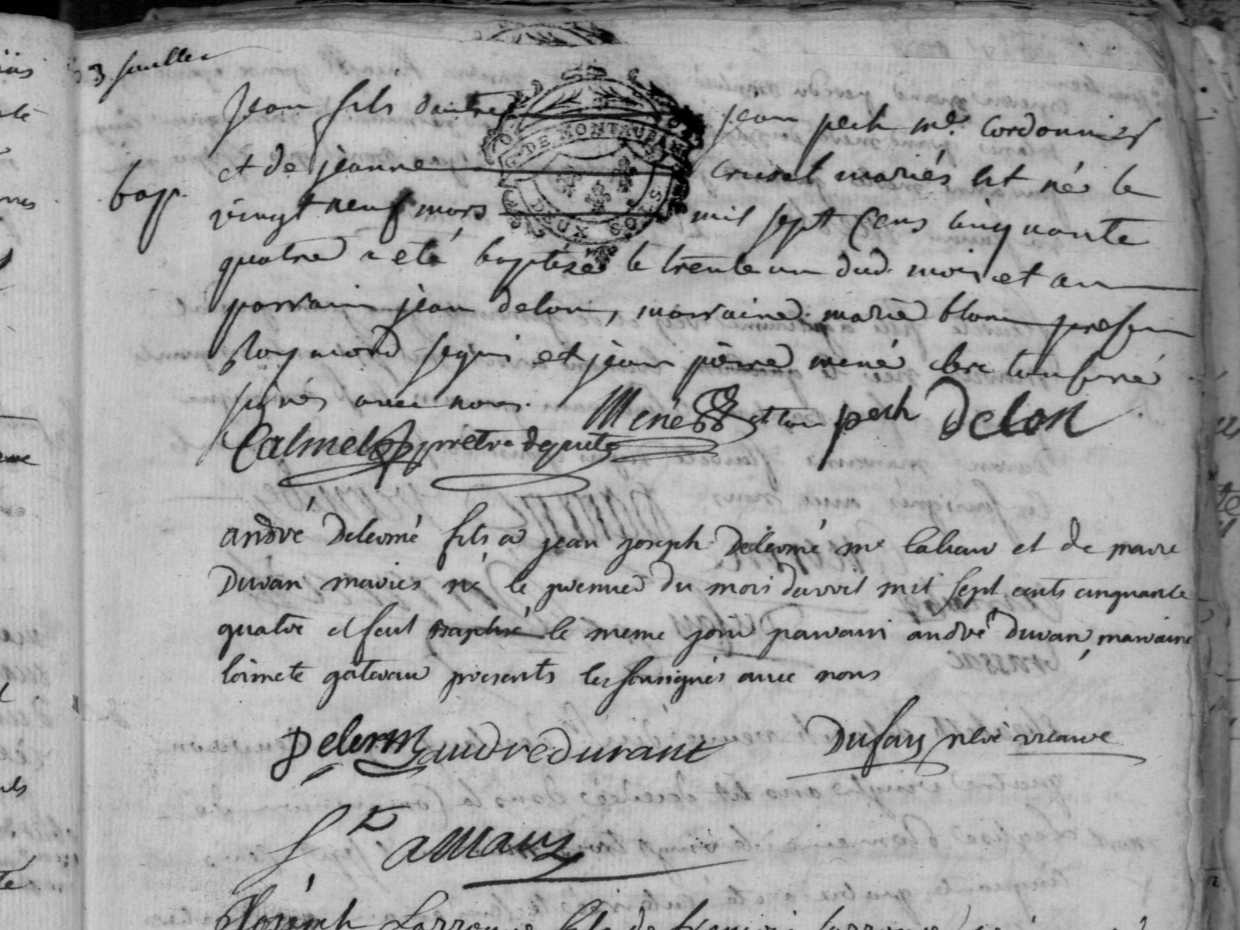 3 feuillet
Jean fils d'autre Jean pech me. Cordonnier
G. DE MONTAUBAN
DEUX SOLS
et de jeanne crusel mariés est né le
bap.
vingt neuf mars mil sept cens cinquante
quatre a eté baptisé le trente un dud. mois et an
parrain jean delon, marraine marie blanc presens
Raymond segui et jean pierre mené clerc tonsuré
signés avec nous. Mené pech Delon
Calmels pretre deputé
andré Delermé fils a jean joseph Delermé me. et de marie
Duran mariés né le premier du mois davril mil sept cents cinquante
quatre et feut baptisé le meme jour parrain andré duran, marraine
gateran presents les sousignés avec nous
Delerm andre durant Dufau vicaire
St amans
Joseph fils de